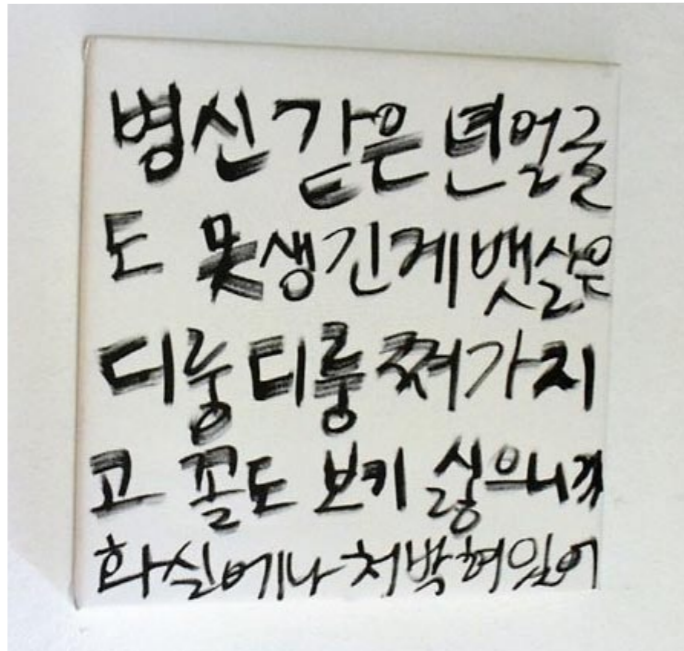 병신같은 년얼글
도 못생긴게뱃살은
디룽디룽쪄가지
고 꼴도 보키 싫으니까
화실에나 처박혀있어